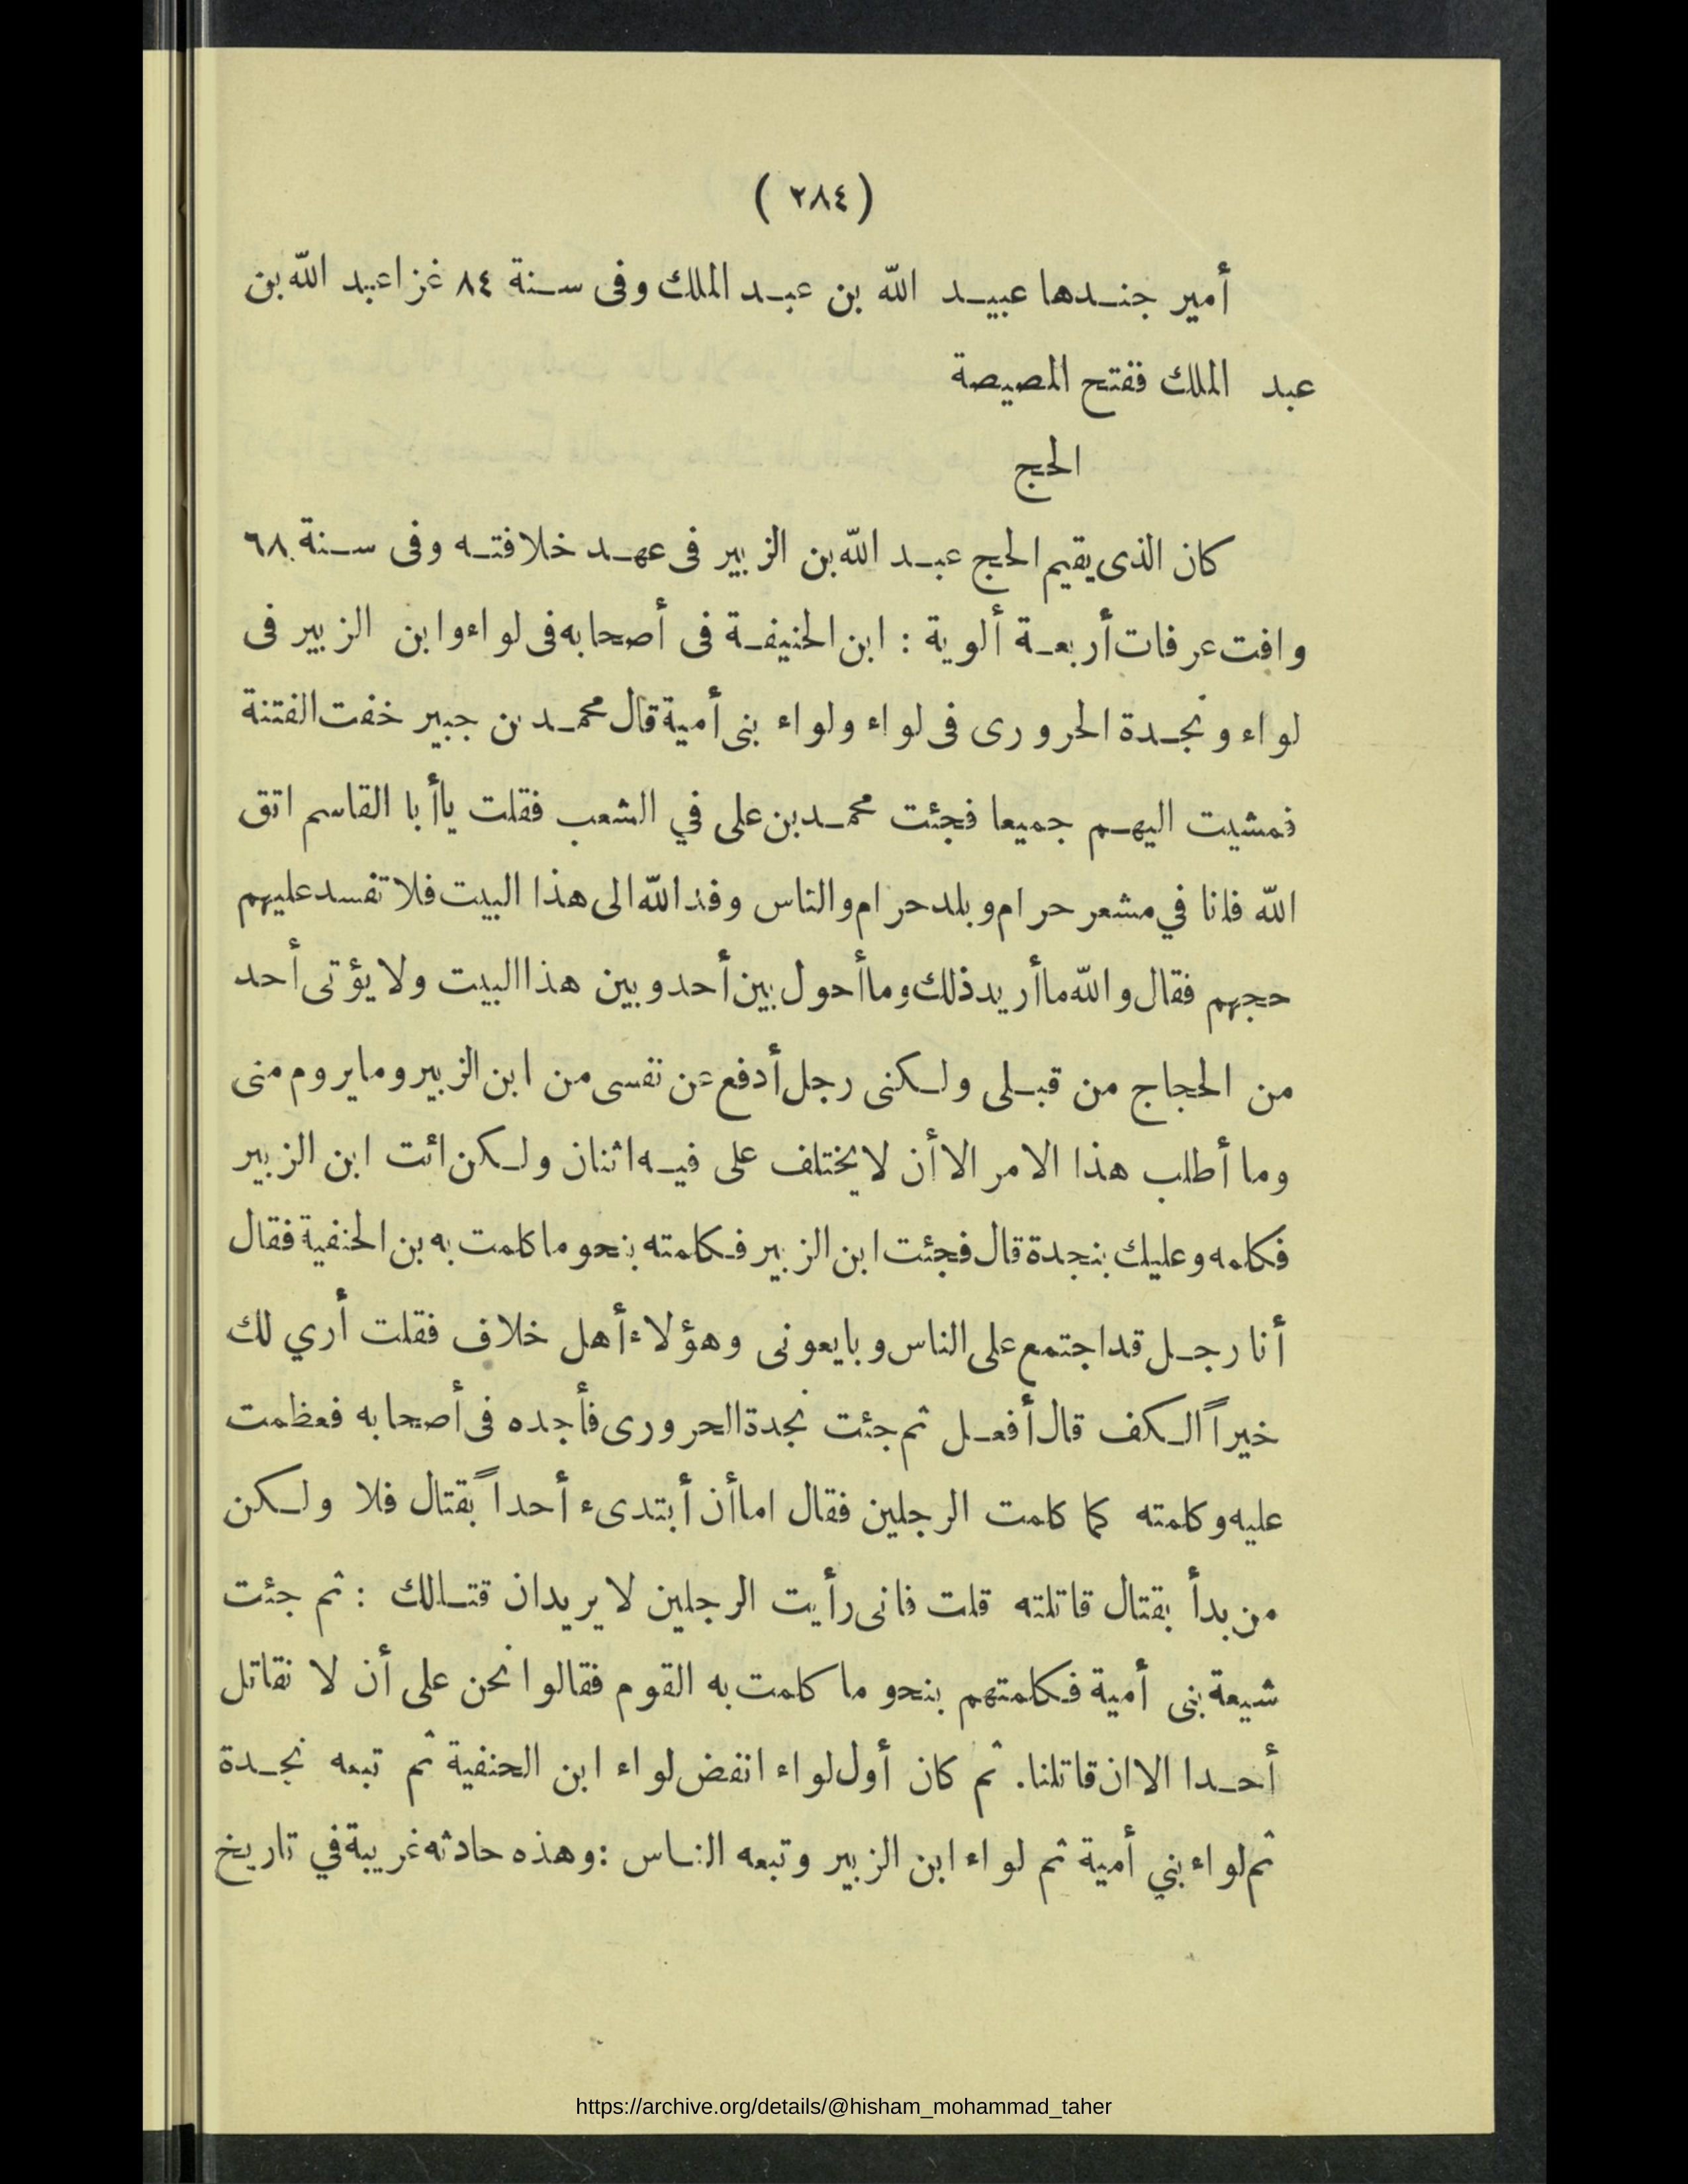 ( ٢٨٤ )
أمير جندها عبيد الله بن عبد الملك وفى سنة ٨٤ غزا عبد الله بن
عبد الملك ففتح المصيصة
الحج
كان الذى يقيم الحج عبد الله بن الزبير فى عهد خلافته وفى سنة ٦٨
وافت عرفات أربعة ألوية : ابن الحنيفة فى أصحابه فى لواء وابن الزبير فى
لواء ونجدة الحرورى فى لواء ولواء بنى أمية قال محمد بن جبير خفت الفتنة
فمشيت اليهم جميعا فجئت محمد بن على في الشعب فقلت ياأبا القاسم اتق
الله فانا في مشعر حرام وبلد حرام والناس وفد الله الى هذا البيت فلا تفسد عليهم
حجهم فقال والله ماأريد ذلك وماأحول بين أحد وبين هذا البيت ولا يؤتى أحد
من الحجاج من قبلى ولكنى رجل أدفع عن نفسى من ابن الزبير وما يروم منى
وما أطلب هذا الامر الا أن لا يختلف على فيه اثنان ولكن ائت ابن الزبير
فكلمه وعليك بنجدة قال فجئت ابن الزبير فكلمته بنحو ما كلمت به بن الحنفية فقال
أنا رجل قد اجتمع على الناس وبايعونى وهؤلاء أهل خلاف فقلت أري لك
خيراً الكف قال أفعل ثم جئت نجدة الحرورى فأجده فى أصحابه فعظمت
عليه وكلمته كما كلمت الرجلين فقال اما أن أبتدىء أحداً بقتال فلا ولكن
من بدأ بقتال قاتلته قلت فانى رأيت الرجلين لا يريدان قتالك : ثم جئت
شيعة بنى أمية فكلمتهم بنحو ما كلمت به القوم فقالوا نحن على أن لا نقاتل
أحدا الا ان قاتلنا. ثم كان أول لواء انفض لواء ابن الحنفية ثم تبعه نجدة
ثم لواء بني أمية ثم لواء ابن الزبير وتبعه الناس : وهذه حادثه غريبة في تاريخ
https://archive.org/details/@hisham_mohammad_taher